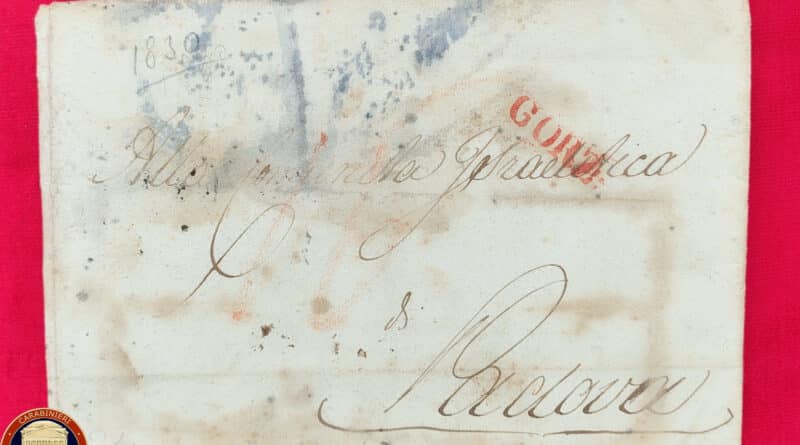 1830
Alla Jsraelitica
di
Padova
CARABINIERI